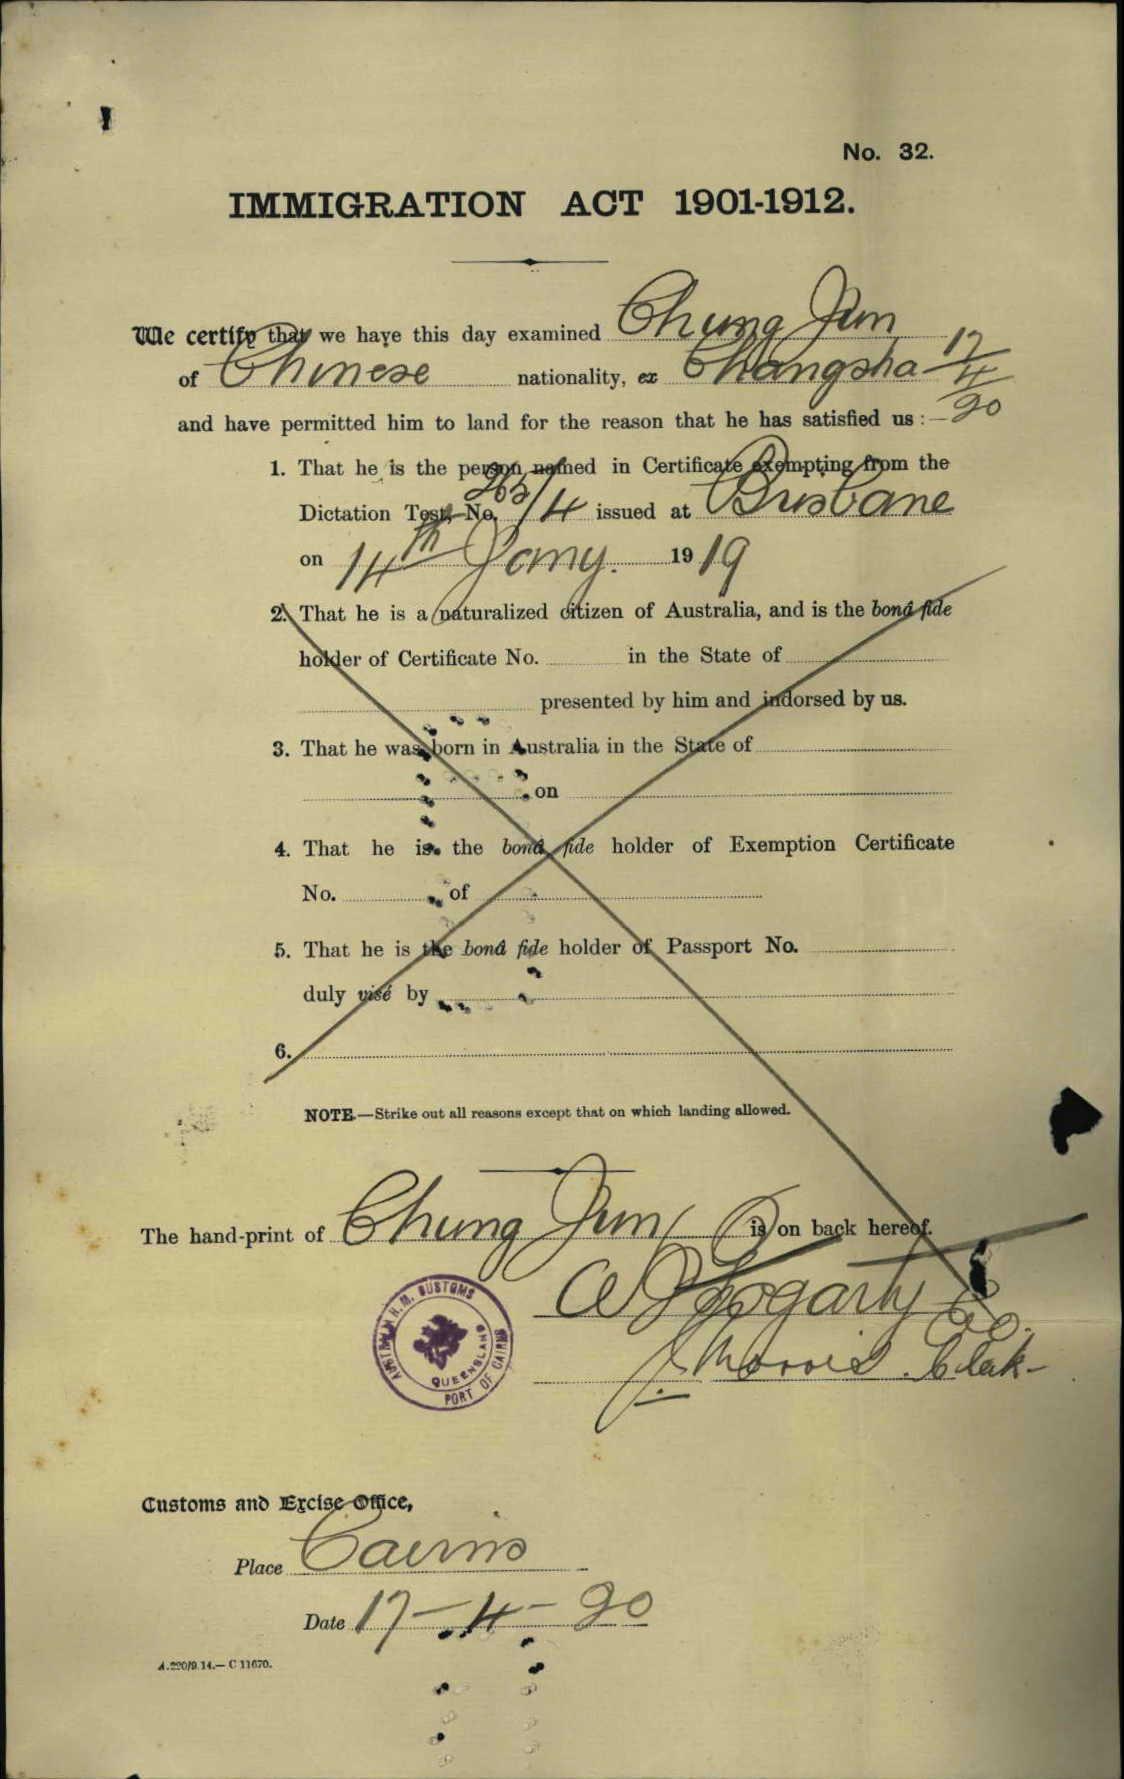 No. 32.
IMMIGRATION ACT 1901-1912.
We certify that we have this day examined Chung Jun
of Chinese nationality, ex Changsha 17/4/20
and have permitted him to land for the reason that he has satisfied us :—
1. That he is the person named in Certificate exempting from the
Dictation Test, No. 265/4 issued at Brisbane
on 14th Jany. 1919
2. That he is a naturalized citizen of Australia, and is the bonâ fide
holder of Certificate No. in the State of
presented by him and indorsed by us.
3. That he was born in Australia in the State of
on
4. That he is the bonâ fide holder of Exemption Certificate
No. of
5. That he is the bonâ fide holder of Passport No.
duly visé by
6.
NOTE.—Strike out all reasons except that on which landing allowed.
The hand-print of Chung Jun is on back hereof.
Fogarty
J. Morris. Clerk
H.M. CUSTOMS
QUEENSLAND
PORT OF CAIRNS
Customs and Excise Office,
Place Cairns
Date 17-4-20
A.220/9.14.—C 11670.